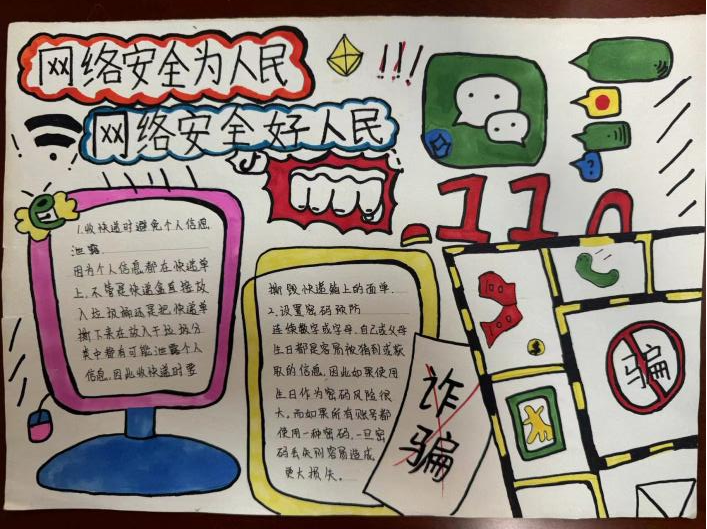 网络安全为人民
网络安全好人民
!!!
110
1.收快递时避免个人信息
泄露
因为个人信息都在快递单
上,不管是快递盒直接放
入垃圾桶还是把快递单
撕下来在放入干垃圾分
类中都有可能泄露个人
信息,因此收快递时要
撕毁快递箱上的面单.
2.设置密码预防
连续数字或字母,自己或父母
生日都是容易被猜到或获
取的信息,因此如果使用
生日作为密码风险很
大,而如果所有账号都
使用一种密码,一旦密
码丢失则容易造成
更大损失.
诈
骗
骗
?